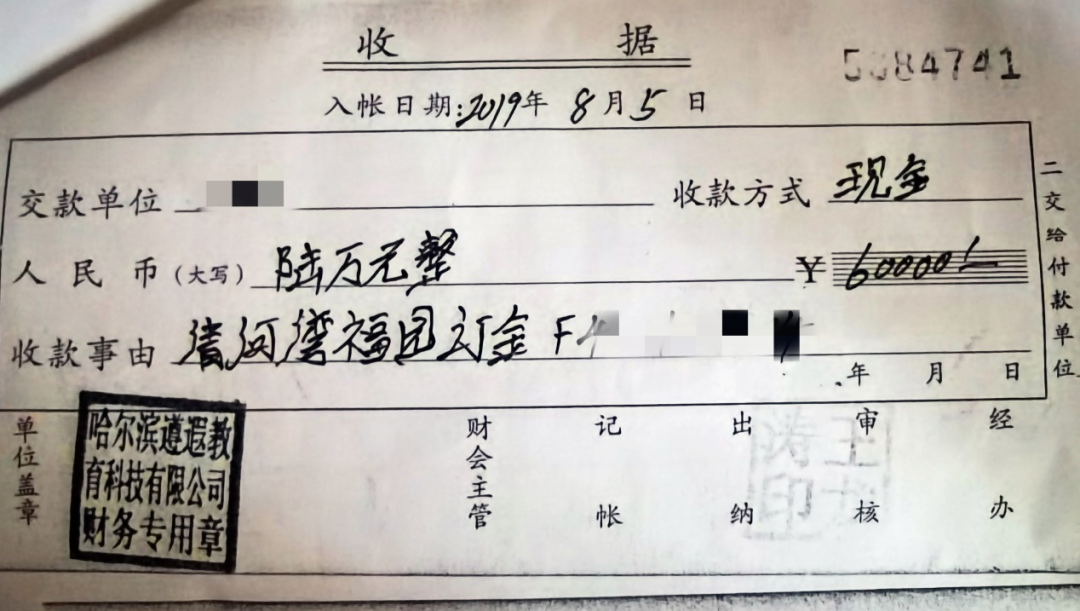 收据
5384741
入帐日期:2019年8月5日
交款单位 收款方式 现金
人民币(大写) 陆万元整 ¥ 60000
收款事由 清河湾福园订金 F4
年 月 日
二交给付款单位
单位盖章
哈尔滨遵遐教
育科技有限公司
财务专用章
财会主管 记帐 出纳 审核 经办
王
涛
印